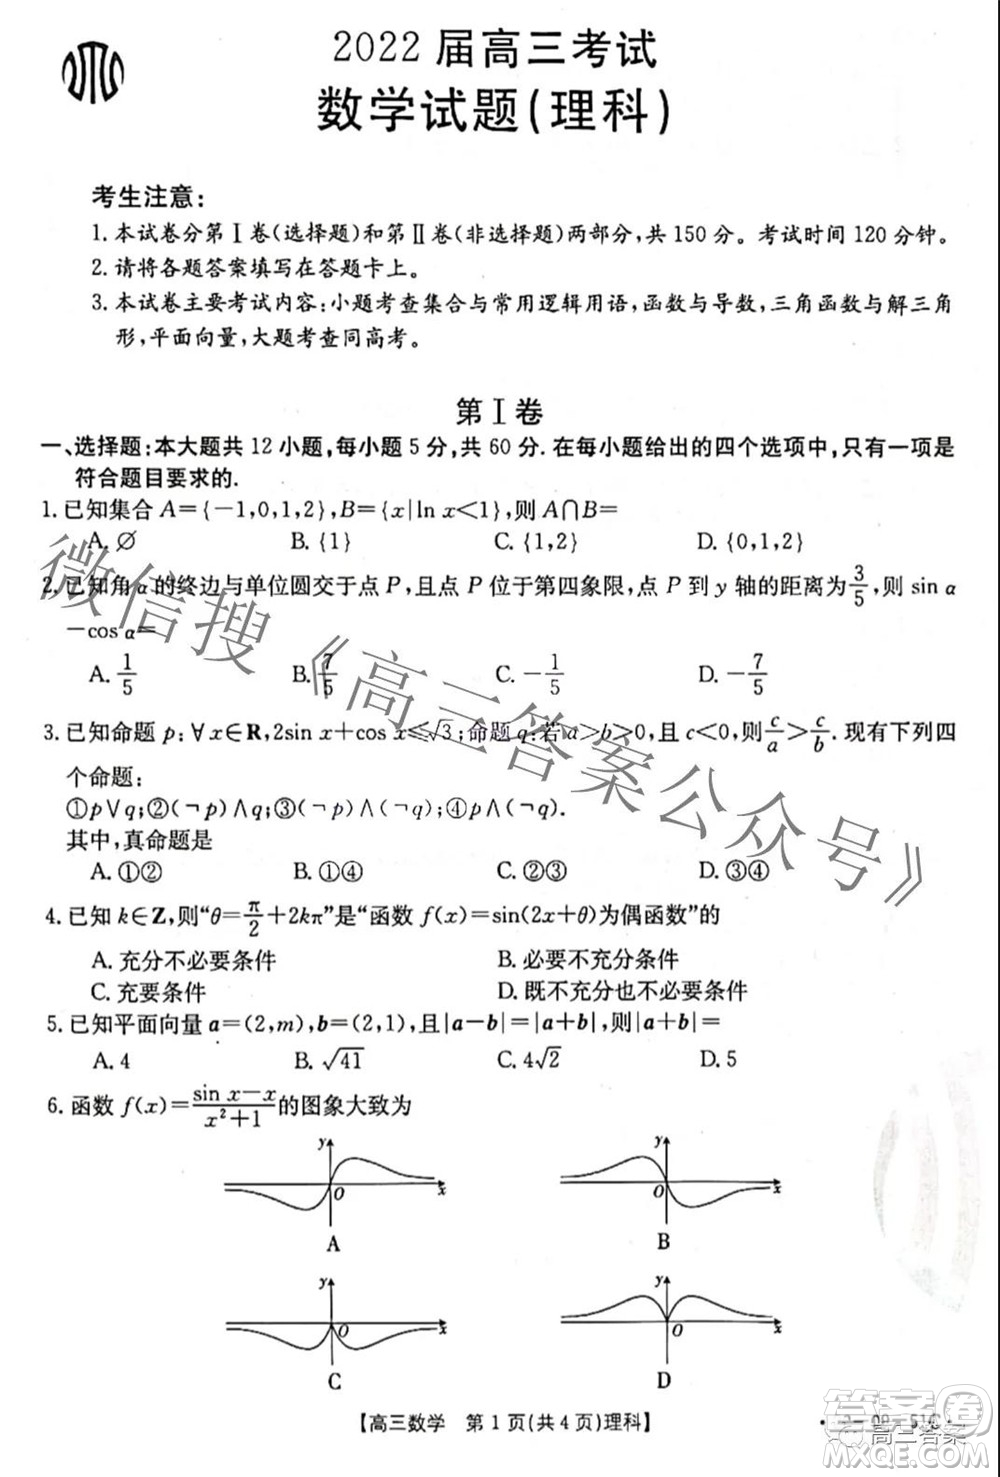 2022 届高三考试
数学试题(理科)
考生注意:
1. 本试卷分第Ⅰ卷(选择题)和第Ⅱ卷(非选择题)两部分,共 150 分。考试时间 120 分钟。
2. 请将各题答案填写在答题卡上。
3. 本试卷主要考试内容:小题考查集合与常用逻辑用语,函数与导数,三角函数与解三角
形,平面向量,大题考查同高考。
第Ⅰ卷
一、选择题:本大题共 12 小题,每小题 5 分,共 60 分.在每小题给出的四个选项中,只有一项是
符合题目要求的.
1. 已知集合 A={-1,0,1,2},B={x|ln x<1},则 A∩B=
A. ∅ B. {1} C. {1,2} D. {0,1,2}
2. 已知角 α 的终边与单位圆交于点 P,且点 P 位于第四象限,点 P 到 y 轴的距离为 3/5,则 sin α
-cos α=
A. 1/5 B. 7/5 C. -1/5 D. -7/5
3. 已知命题 p:∀x∈R,2sin x+cos x≤√3;命题 q:若 a>b>0,且 c<0,则 c/a>c/b. 现有下列四
个命题:
①p∨q;②(¬p)∧q;③(¬p)∧(¬q);④p∧(¬q).
其中,真命题是
A. ①② B. ①④ C. ②③ D. ③④
4. 已知 k∈Z,则“θ=π/2+2kπ”是“函数 f(x)=sin(2x+θ)为偶函数”的
A. 充分不必要条件 B. 必要不充分条件
C. 充要条件 D. 既不充分也不必要条件
5. 已知平面向量 a=(2,m),b=(2,1),且|a-b|=|a+b|,则|a+b|=
A. 4 B. √41 C. 4√2 D. 5
6. 函数 f(x)=(sin x-x)/(x²+1)的图象大致为
y
O
x
A
y
O
x
B
y
O
x
C
y
O
x
D
【高三数学 第 1 页(共 4 页)理科】
微信搜《高三答案公众号》
答案圈
高三答案